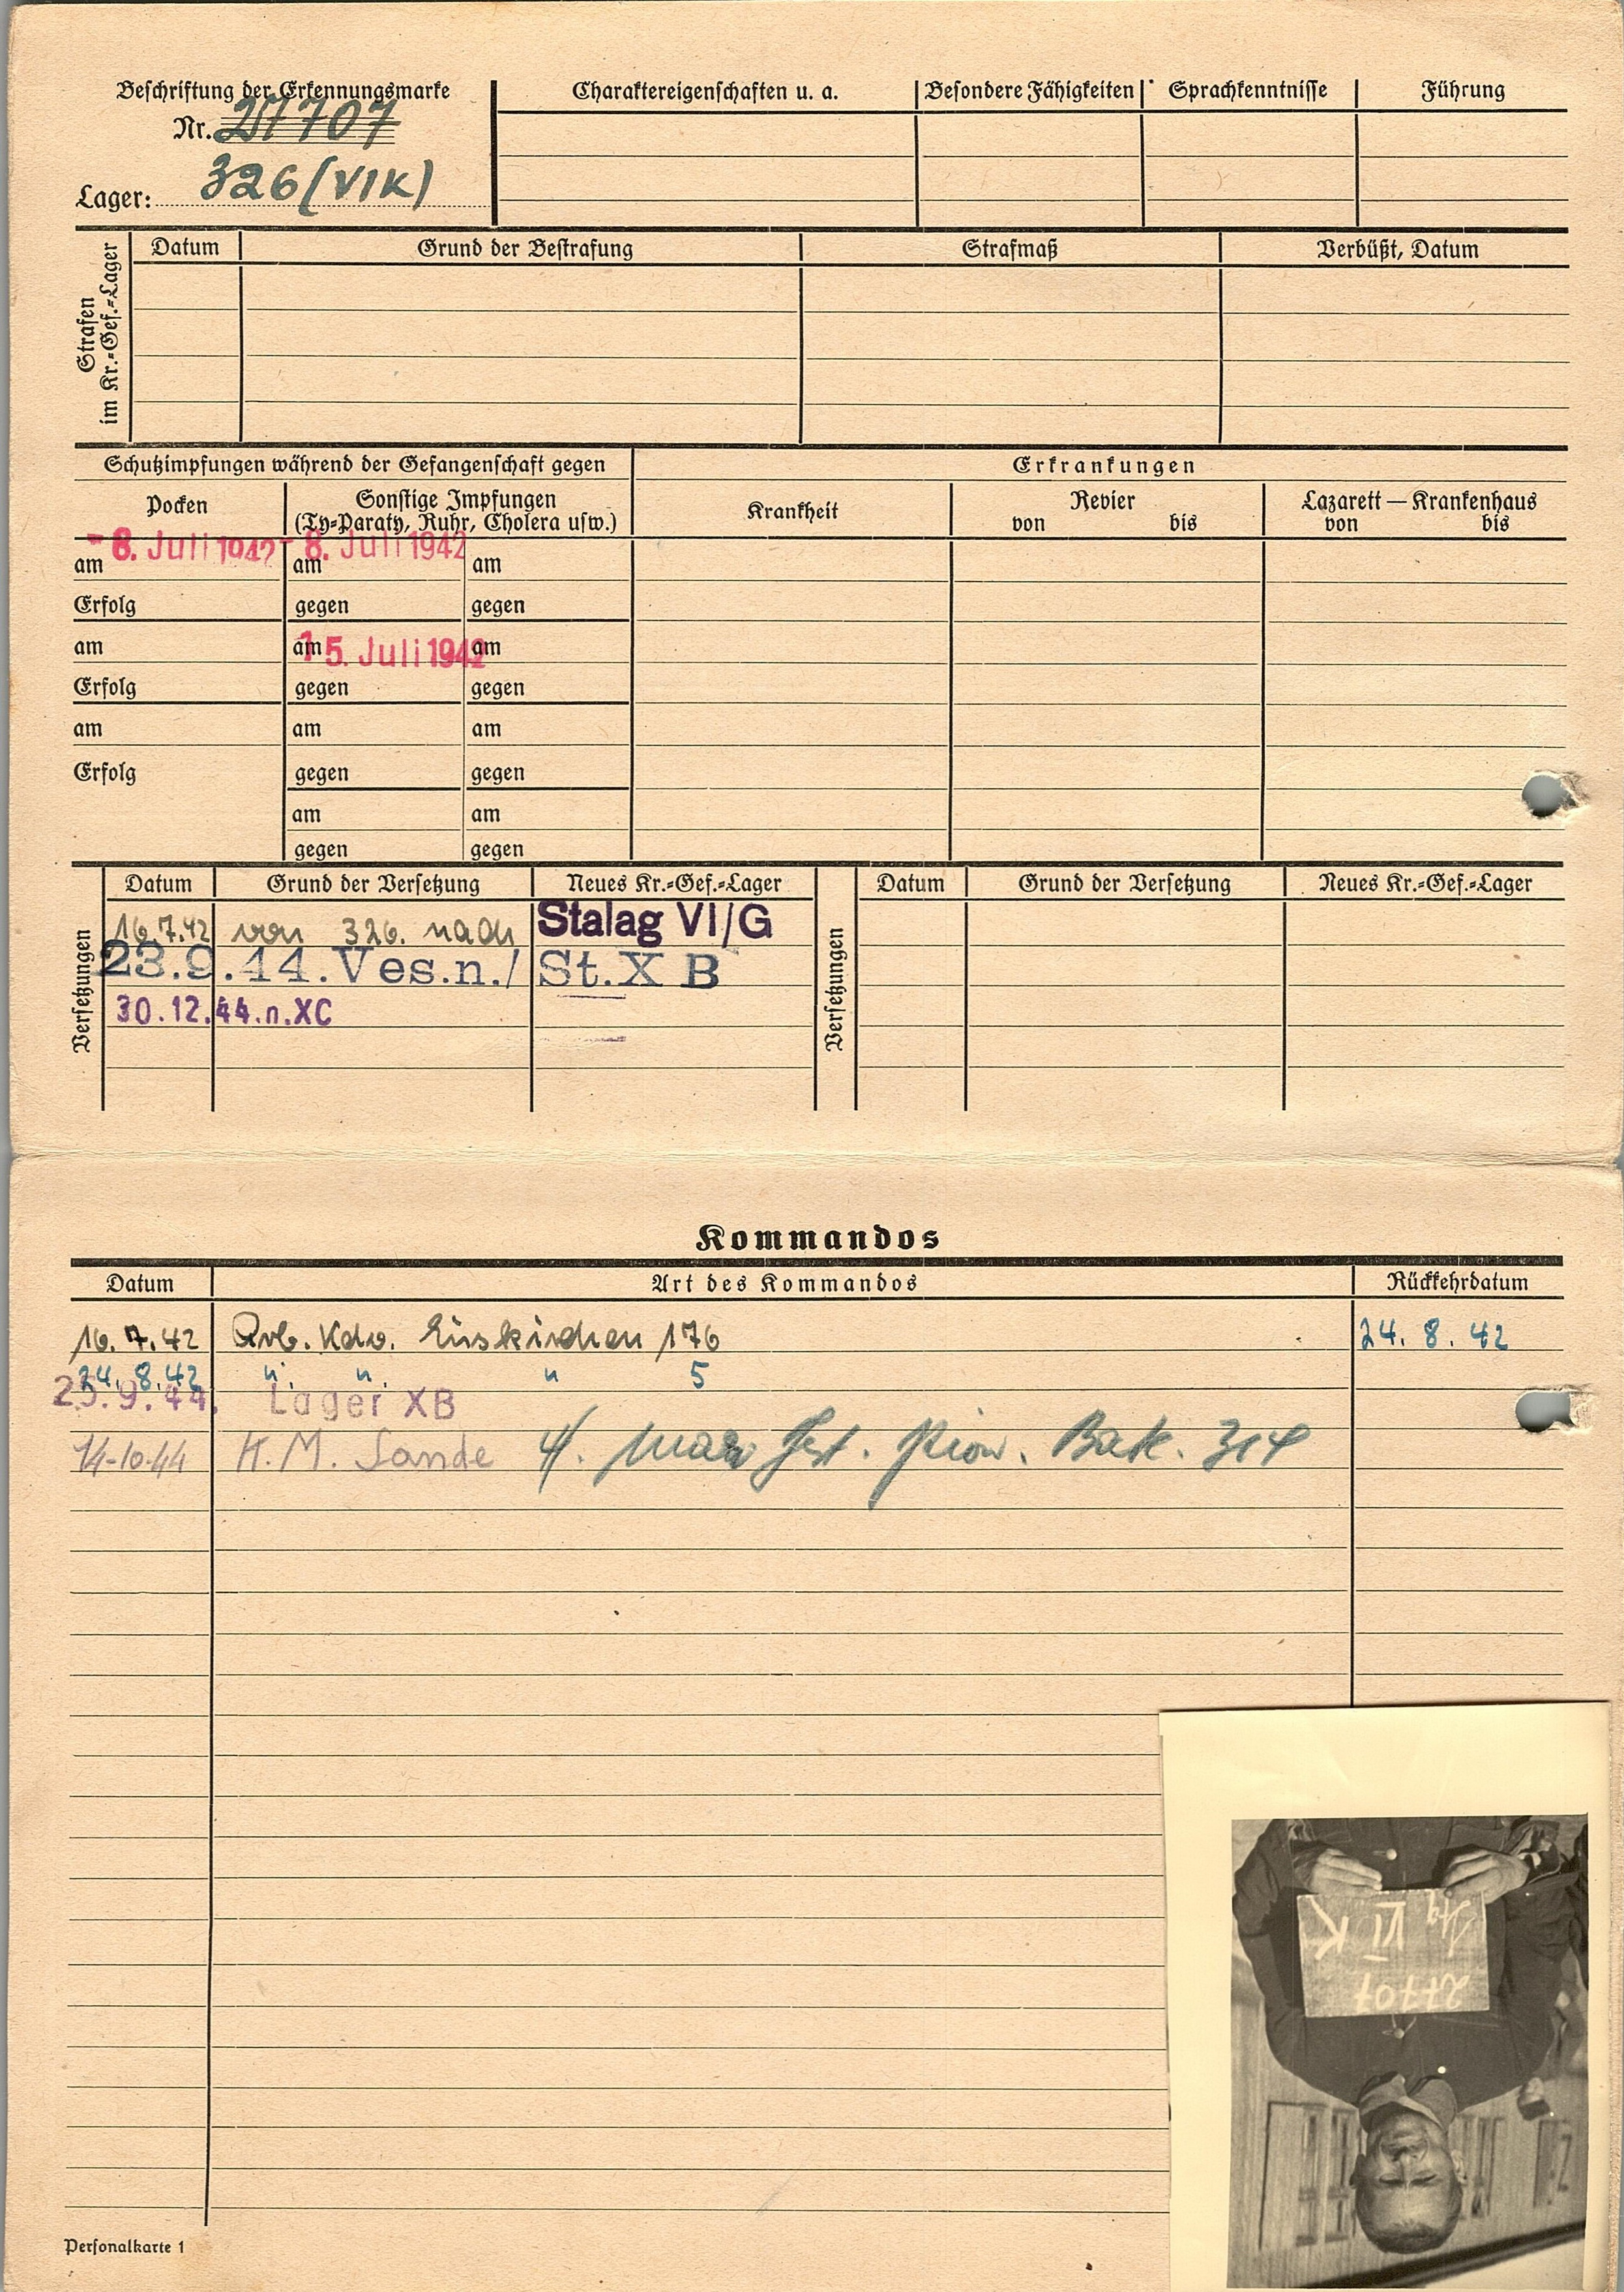 Beschriftung der Erkennungsmarke
Nr. 27707
Lager: 326 (VIK)
Charaktereigenschaften u. a. Besondere Fähigkeiten Sprachkenntnisse Führung
Strafen im Kr.-Gef.-Lager
Datum Grund der Bestrafung Strafmaß Verbüßt, Datum
Schutzimpfungen während der Gefangenschaft gegen Erkrankungen
Pocken Sonstige Impfungen (Ty-Paraty, Ruhr, Cholera usw.) Krankheit Revier von bis Lazarett — Krankenhaus von bis
am - 8. Juli 1942 am - 8. Juli 1942 am
Erfolg gegen gegen
am am 15. Juli 1942 am
Erfolg gegen gegen
am am am
Erfolg gegen gegen
am am
gegen gegen
Versetzungen
Datum Grund der Versetzung Neues Kr.-Gef.-Lager
16.7.42 von 326. nach Stalag VI/G
23.9.44. Ves.n./ St.X B
30.12.44.n.XC
Versetzungen
Datum Grund der Versetzung Neues Kr.-Gef.-Lager
Kommandos
Datum Art des Kommandos Rückkehrdatum
16.7.42 Arb. Kdo. Euskirchen 176 24. 8. 42
24. 8. 42 " " " 5
23.9.44. Lager XB
14-10-44 K. M. Sande 4/. Mar Fest. Pion. Batl. 314
Stg VI K
27707
Personalkarte 1